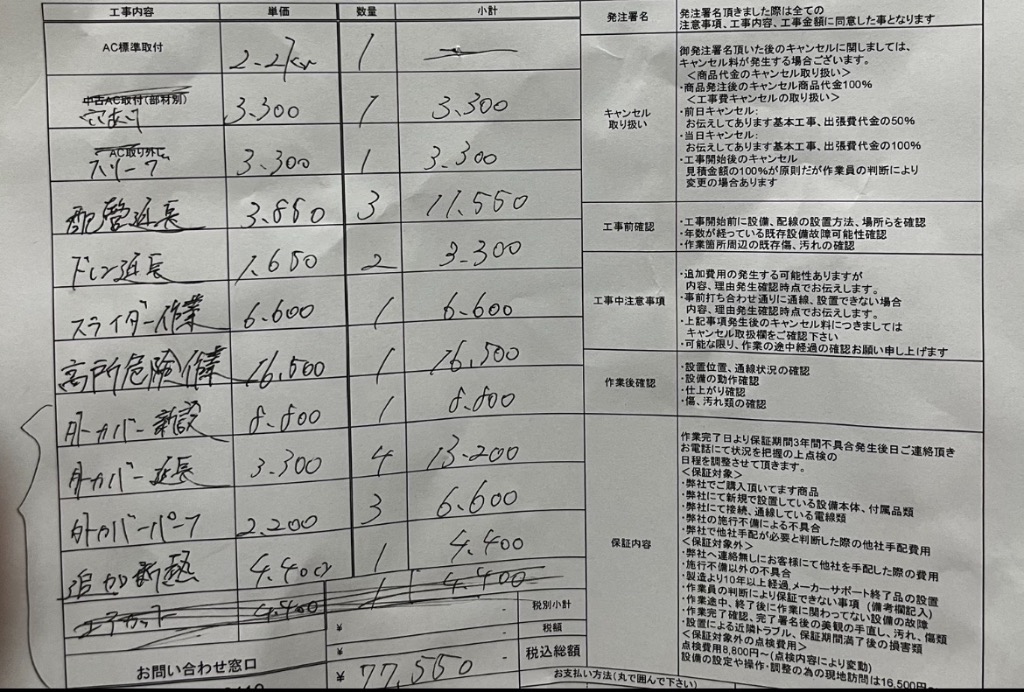 工事内容 単価 数量 小計
AC標準取付 2.2kw 1 —
中古AC取付(部材別)
穴あけ 3.300 1 3.300
AC取り外し
スリーブ 3.300 1 3.300
配管延長 3.850 3 11.550
ドレン延長 1.650 2 3.300
スライダー作業 6.600 1 6.600
高所危険作業 16,500 1 16,500
外カバー新設 8.800 1 8.800
外カバー延長 3.300 4 13.200
外カバーパーツ 2.200 3 6.600
追加断熱 4.400 1 4.400
エアカット 4.400 1 4.400
税別小計
¥ 税額
お問い合わせ窓口
¥ 77,550 税込総額
発注署名
発注署名頂きました際は全ての
注意事項、工事内容、工事金額に同意した事となります
キャンセル
取り扱い
御発注署名頂いた後のキャンセルに関しましては、
キャンセル料が発生する場合ございます。
<商品代金のキャンセル取り扱い>
・商品発注後のキャンセル商品代金100%
<工事費キャンセルの取り扱い>
・前日キャンセル:
お伝えしてあります基本工事、出張費代金の50%
・当日キャンセル:
お伝えしてあります基本工事、出張費代金の100%
・工事開始後のキャンセル
見積金額の100%が原則だが作業員の判断により
変更の場合あります
工事前確認
・工事開始前に設備、配線の設置方法、場所らを確認
・年数が経っている既存設備故障可能性確認
・作業箇所周辺の既存傷、汚れの確認
工事中注意事項
・追加費用の発生する可能性ありますが
内容、理由発生確認時点でお伝えします。
・事前打ち合わせ通りに通線、設置できない場合
内容、理由発生確認時点でお伝えします。
・上記事項発生後のキャンセル料につきましては
キャンセル取扱欄をご確認下さい
・可能な限り、作業の途中経過の確認お願い申し上げます
作業後確認
・設置位置、通線状況の確認
・設備の動作確認
・仕上がり確認
・傷、汚れ類の確認
保証内容
作業完了日より保証期間3年間不具合発生後日ご連絡頂き
お電話にて状況を把握の上点検の
日程を調整させて頂きます。
<保証対象>
・弊社でご購入頂いてます商品
・弊社にて新規で設置している設備本体、付属品類
・弊社にて接続、通線している電線類
・弊社の施行不備による不具合
・弊社で他社手配が必要と判断した際の他社手配費用
<保証対象外>
・弊社へ連絡無しにお客様にて他社を手配した際の費用
・施行不備以外の不具合
・製造より10年以上経過、メーカーサポート終了品の設置
・作業員の判断により保証できない事項(備考欄記入)
・作業途中、終了後に作業に関わってない設備の故障
・作業完了確認、完了署名後の美観の手直し、汚れ、傷類
・設置による近隣トラブル、保証期間満了後の損害類
<保証対象外の点検費用>
点検費用8,800円~(点検内容により変動)
設備の設定や操作・調整の為の現地訪問は16,500円~
お支払い方法(丸で囲んで下さい)